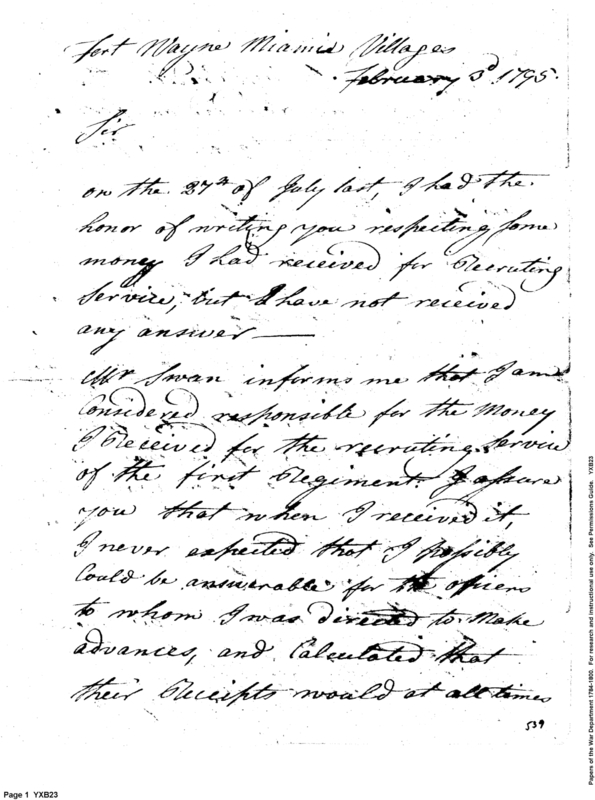 Fort Wayne Miamis Villages
February 3d 1795.
Sir
on the 27th of July last, I had the
honor of writing you respecting some
money I had received for Recruting
Service, but I have not received
any answer —
Mr Swan informs me that I am
Considered responsible for the Money
I Received for the recruting Service
of the first Regiment. I assure
you that when I received it,
I never expected that I possibly
Could be answerable for the officers
to whom I was directed to make
advances, and Calculated that
their Receipts would at all times
539
Page 1 YXB23
Papers of the War Department 1784-1800. For research and instructional use only. See Permissions Guide. YXB23